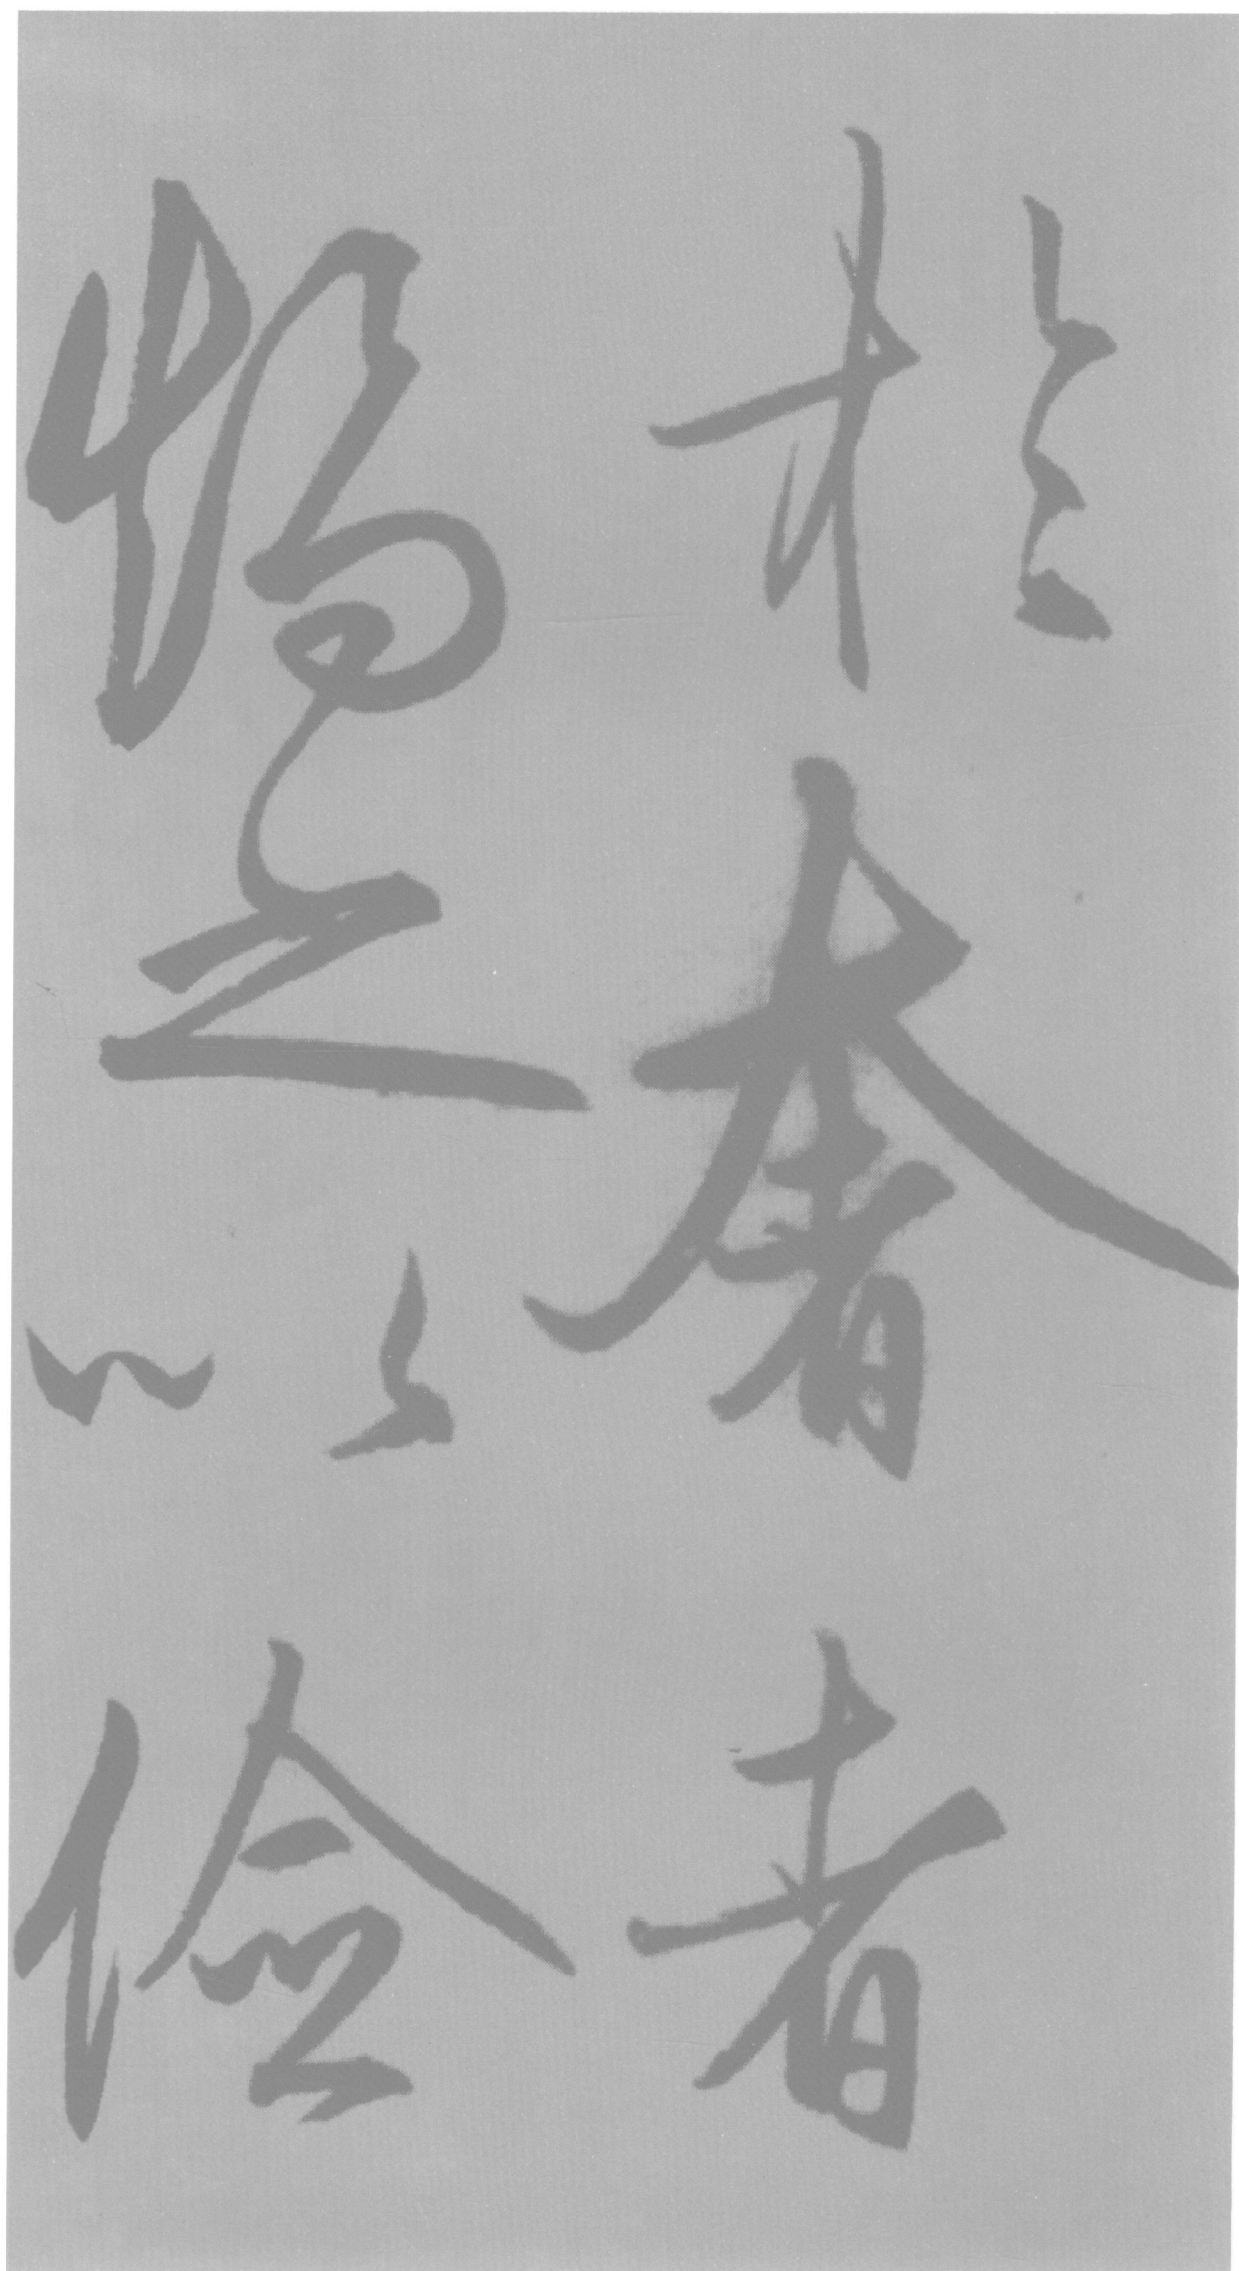 於奢者
之以儉